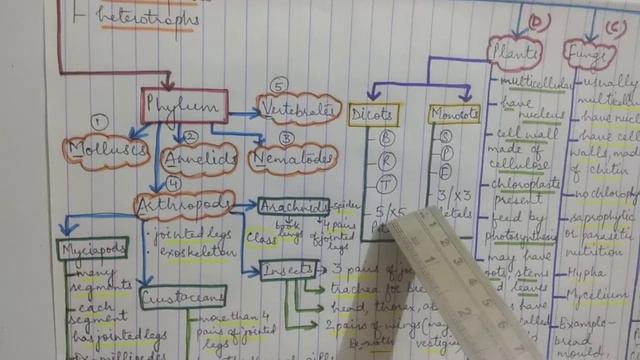 heterotrophs
(D)
(C)
Plants
Fungi
Phylum
⑤
Vertebrates
①
Molluscs
②
Annelids
③
Nematodes
④
Arthropods
: jointed legs
: exoskeleton
Class
Arachnids
spider
book lungs
4 pairs of jointed legs
Myriapods
many segments
each segment has jointed legs
Crustaceans
more than 4 pairs of jointed legs
Insects
3 pairs of
trachea for
head, thorax,
2 pairs of wings
Dicots
B
R
T
5/x5
Monocots
S
P
E
3/x3
multicellular
have nucleus
cell wall made of cellulose
chloroplasts present
feed by photosynthesis
may have
stems
leaves
have
usually
have
have cell walls, made of chitin
no
saprophytic or parasitic nutrition
Hypha
Mycelium
Example-
bread mould,
1
2
3
4
5
6
7